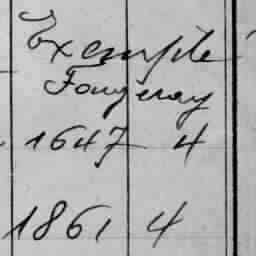 Exemple
Fougeray
1647 4
1861 4